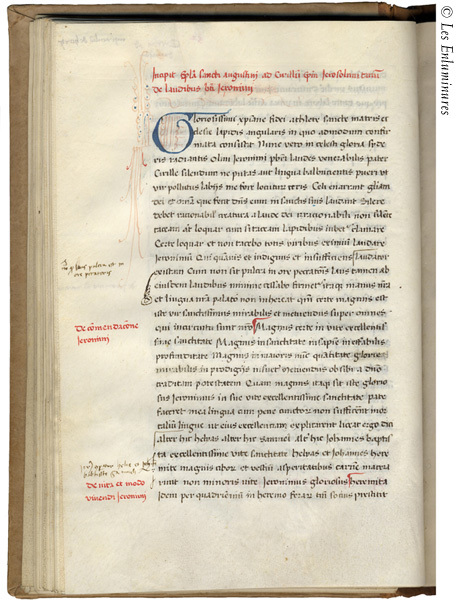 Incipit Epl'a sancti augustini ad Cirillum epm Jerosolimitanum
de laudibus bti Jeronimi
Gloriosissimi xpiane fidei athlete sancte matris ec
clesie lapidis angularis in quo admodum confir
mata consistit Nunc vero in celesti gloria syd
eris radiantis olim Jeronimi pbri laudes venerabilis pater
Cirille silendum ne putas aut lingua balbucientis pueri ut
vir pollutis labijs me fore locuturum Celi enarrant gliam
dei et omnia que fecit dns in sanctis suis laudant Silere
debet rationabilis creatura a laude dei irrationabili non silente
taceam aut loquar cum si taceam lapidibus iubetur clamare
Certe loquar et non tacebo totis viribus eximium laudare
Jeronimum Qui quamvis et indignus et insufficiens laudator
existam Cum non sit pulcra in ore peccatoris laus tamen ab
eiusdem laudibus minime cessabo firmetur itaque manus nra
et lingua nra palato non inhereat quia certe magnus est
iste vir sanctissimus mirabilis et metuendus super omnes
qui in circuitu sunt nro Magnus certe in vite excellentissi
sanctitate Magnus in sapie ineffabilis
profunditate Magnus in maioris nunc quantitate glorie
mirabilis in prodigijs metuendus ob sibi a dno
traditam potestatem Quam magnus itaque sit iste glorio
sus Jeronimus in sue vite excellentissime sanctitate pate
faceret mea lingua cum pene cunctorum non sufficerent mor
talium lingue ut eius excellentiam explicarent liceat ergo dici
alter hic helyas alter hic samuel Alter hic Johannes baptis
ta excellentissime vite sanctitate helyas et Johannes here
mite magnis ciborum et vestium asperitatibus carnem macera
runt non minoris vite Jeronimus gloriosus heremita
Idem per quadriennium in heremo ferarum tm socius prestitit
pulcra in
ore peccatoris
De comendacione
Jeronimi
De vita et modo
vivendi Jeronimi
© Les Enluminures